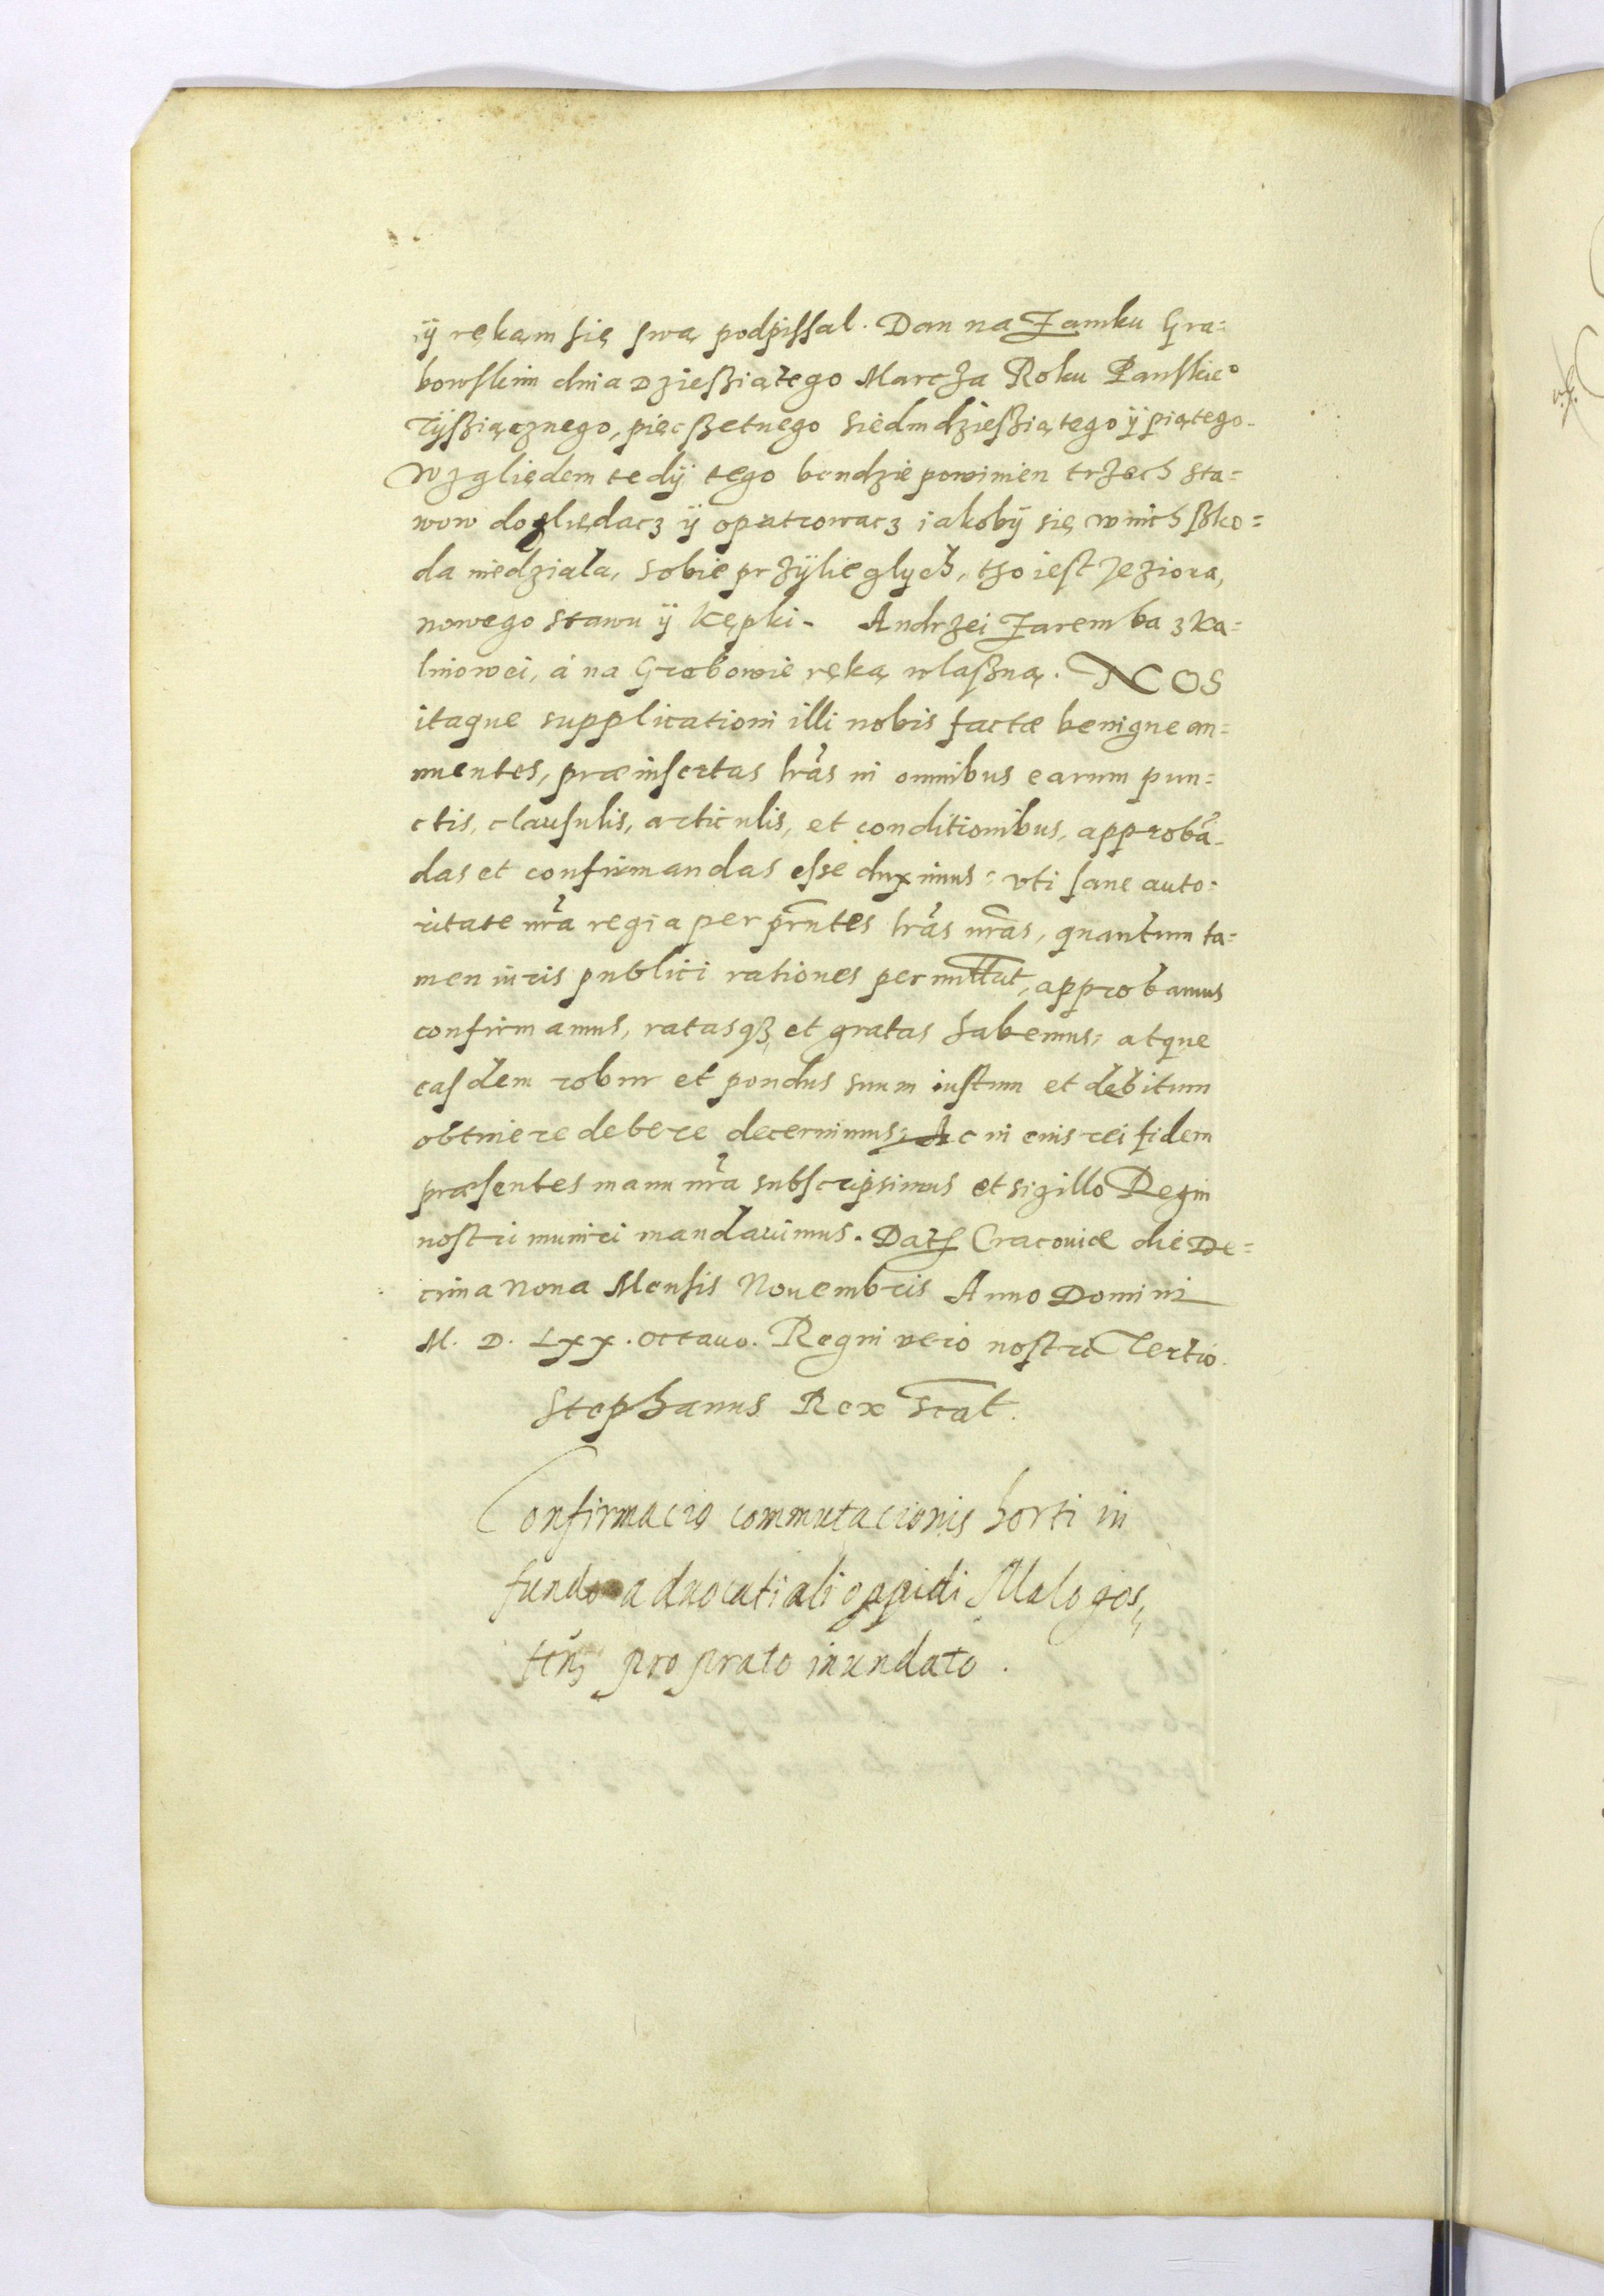 ÿ rękąm się swą podpissal. Dan na Zamku Gra=
bowskim dnia Dziesziątego Marcza Roku Panskie°
Tÿsziącznego, pięcszetnego siedmdziesziątego ÿ piątego.
Wzgliędem tedÿ tego bendzie powinien trzech sta=
wow dogliędacz ÿ opatrowacz iakobÿ się w nich szko=
da niedziala, sobie przÿlieglych, tzo iest Jeziora,
nowego stawu ÿ Kępki. Andrzei Zaremba z Ka=
linowei, á na Grabowie ręką wlaszną. NOS
itaque supplicationi illi nobis factæ benigne an=
nuentes, præinsertas lras in omnibus earum pun=
ctis, clausulis, articulis, et conditionibus, approbā=
das et confirmandas esse duximus: vti sane auto=
ritate nra regia per prntes lras nras, quantum ta=
men iuris publici rationes permittut, approbamus
confirmamus, ratasqȝ et gratas habemus, atque
easdem robur et pondus suum iustum et debitum
obtinere debere decernimus. Ac in cuis rei fidem
præsentes manu nra subscripsimus et sigillo Regni
nostri muniri mandauimus. Dat Cracouiæ die De=
cima Nona Mensis Nouembris Anno Domini
M. D. Lxx. octauo. Regni vero nostri Tertio.
Stephanus Rex scat.
Confirmacio commutacionis horti in
fundo aduocatiali oppidi Malogos,
ten, pro prato inundato.